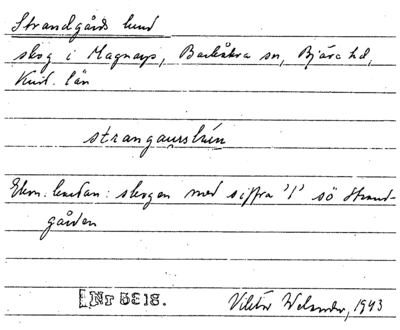 Strandgårds lund
skog i Magnarp, Barkåkra sn, Bjäre hd,
Krist. län
strangaṇṣlúṇ
Ekon. kartan: skogen med siffra "1" sö Strand-
gården
Nr 5618.
Viktor Welander, 1943